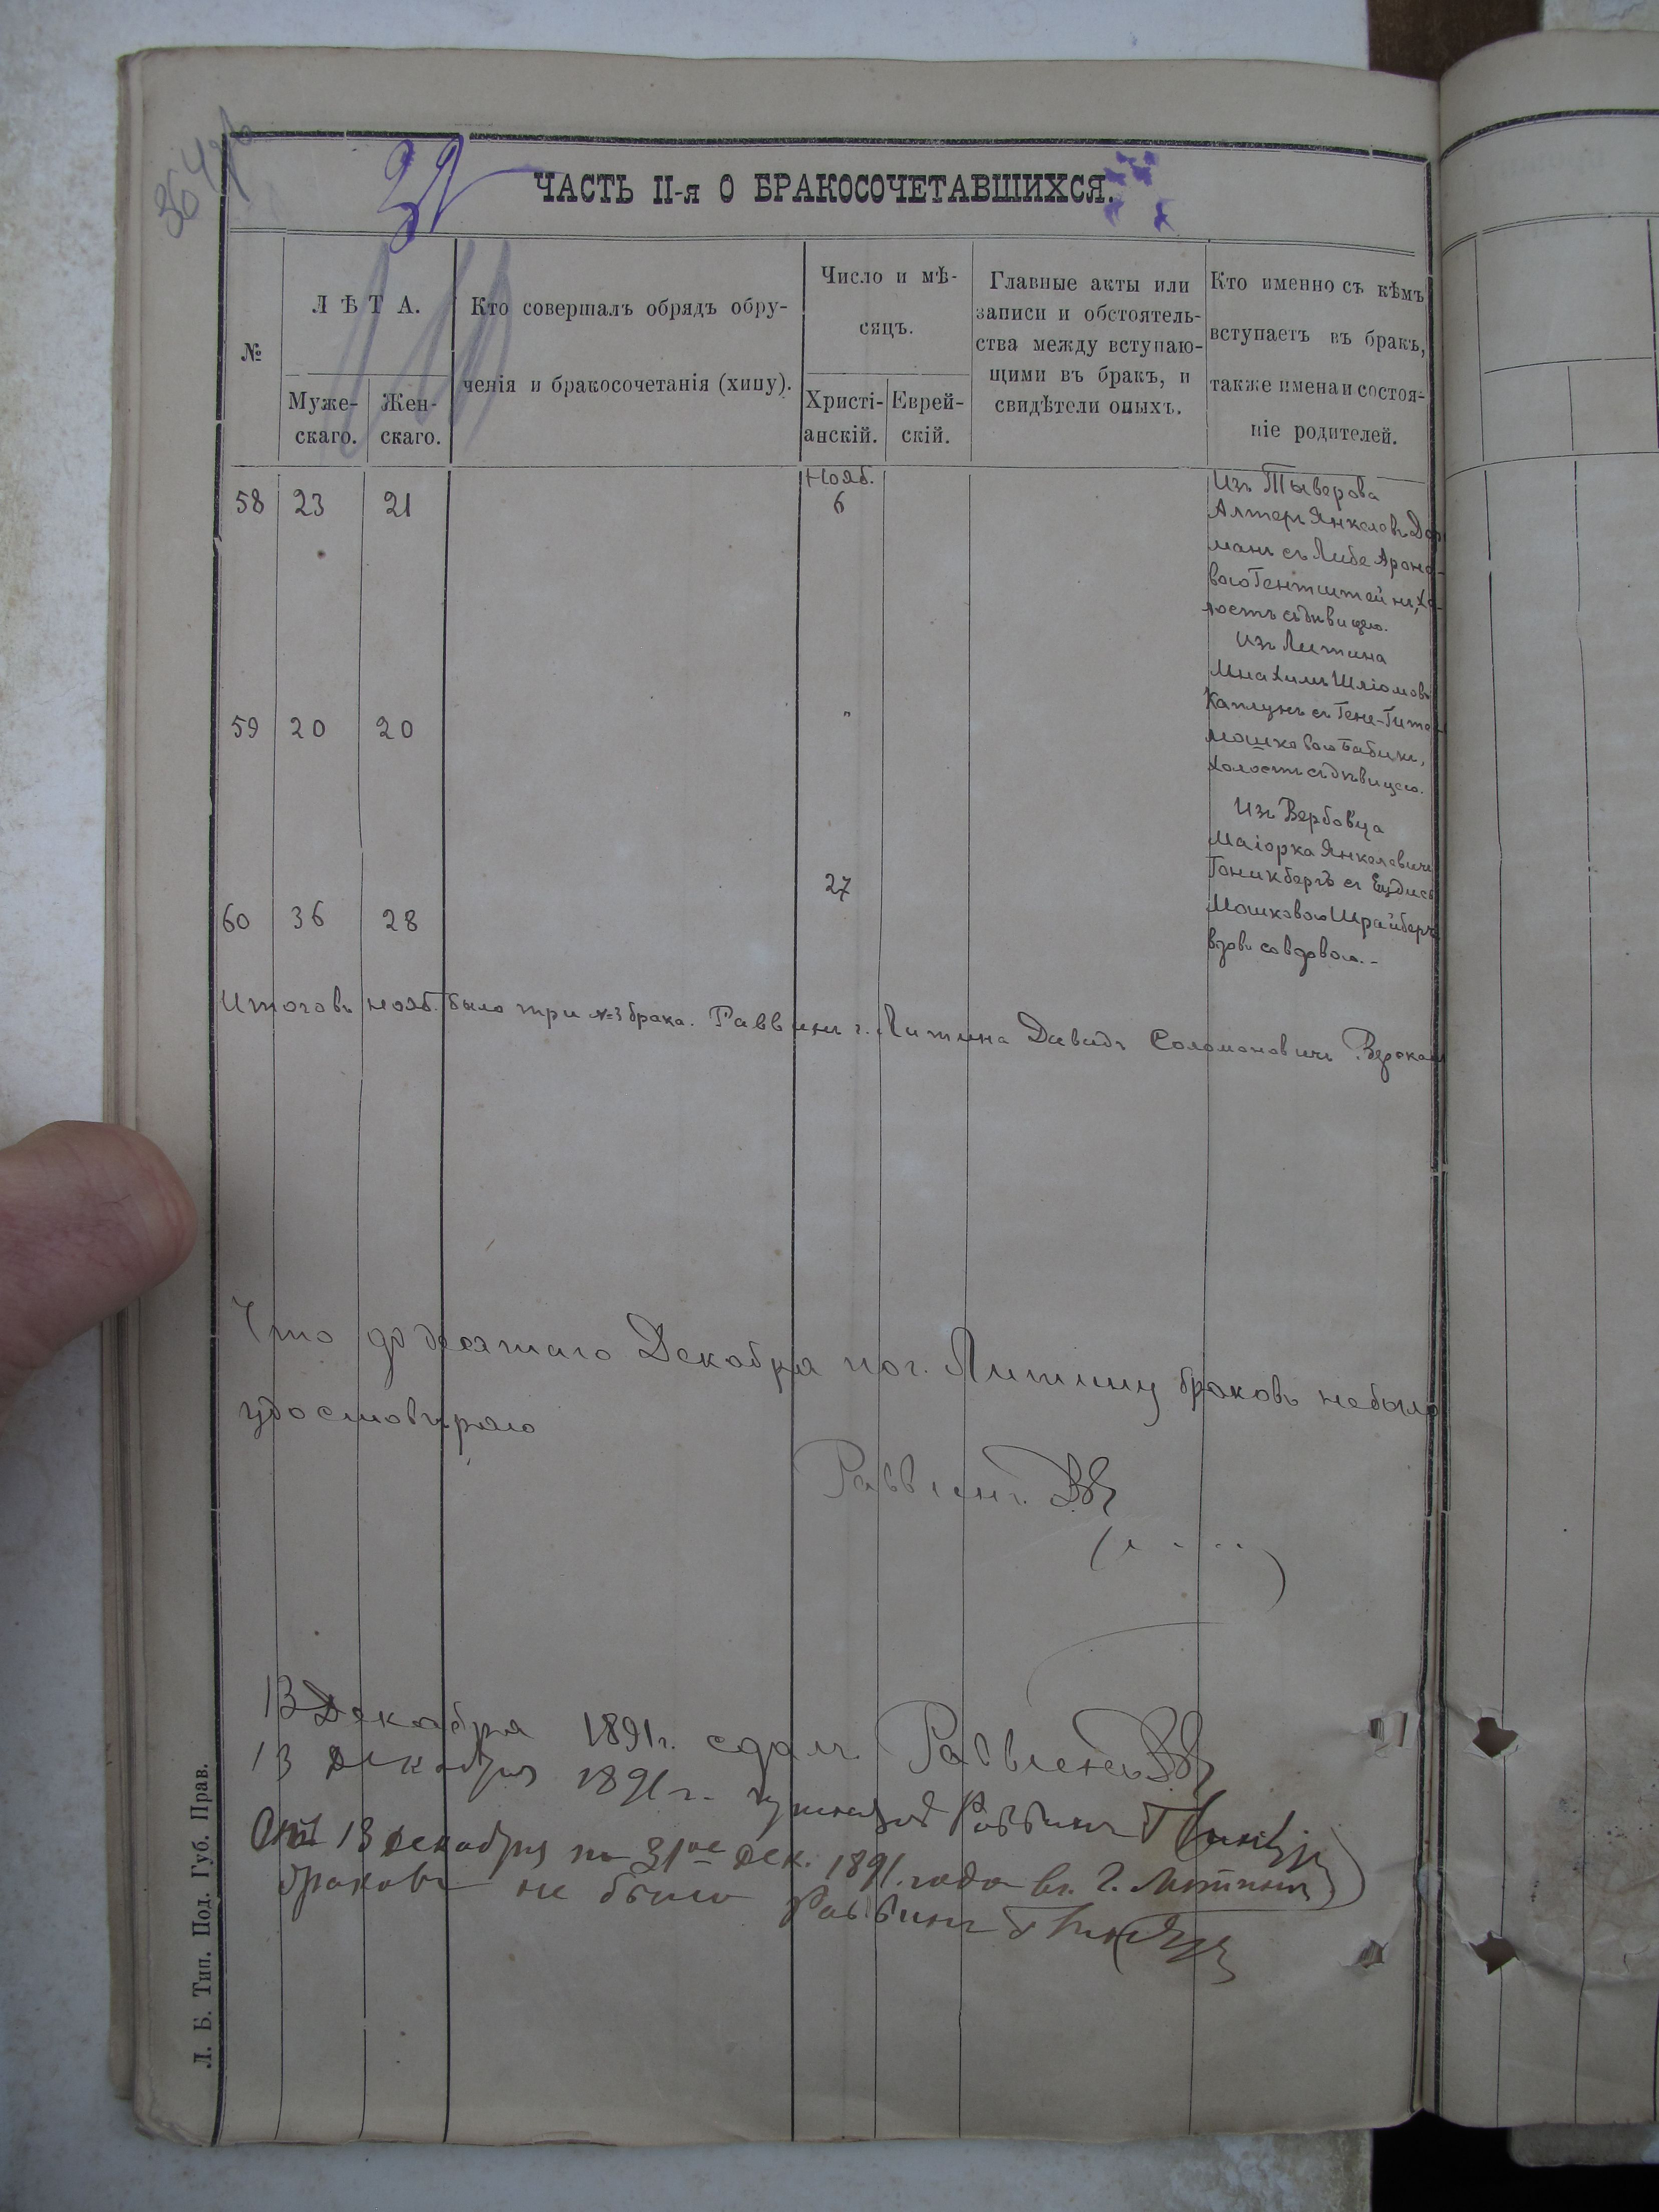 32
ЧАСТЬ II-я О БРАКОСОЧЕТАВШИХСЯ.
№
ЛѢТА.
Муже-
скаго.
Жен-
скаго.
Кто совершалъ обрядъ обру-
ченія и бракосочетанія (хипу).
Число и мѣ-
сяцъ.
Христі-
анскій.
Еврей-
скій.
Главные акты или
записи и обстоятель-
ства между вступаю-
щими въ бракъ, и
свидѣтели оныхъ.
Кто именно съ кѣмъ
вступаетъ въ бракъ,
также имена и состоя-
ніе родителей.
Нояб.
58 23 21 6
Изъ Тыверова
Алтеръ Янкелевъ
манъ съ Либе Ароно-
вою Генштейнъ, хо-
лостъ съ дѣвицею.
59 20 20 "
Изъ Литина
Мнахимъ Шліомовъ
Каплунъ съ Гене-Гите
Мошковою Бабикъ,
холостъ съ дѣвицею.
60 36 28 27
Изъ Вербовца
Маіорка Янкелевичъ
Гоникбергъ съ
Мошковою Шрайберъ
вдов. со вдовою.-
Итого въ нояб. было три №3 брака. Раввинъ г. Литина Давидъ Соломоновичъ
Что до десятаго Декабря по г. Литину браковъ не было
удостовѣряю
Раввинъ
13 Декабря 1891 г. сдалъ Раввинъ
13 Декабря 1891 г. принялъ Раввинъ
Отъ 13 Декабря по 31ое Дек. 1891. года въ г. Литинѣ
браковъ не было Раввинъ
Л. Б. Тип. Под. Губ. Прав.